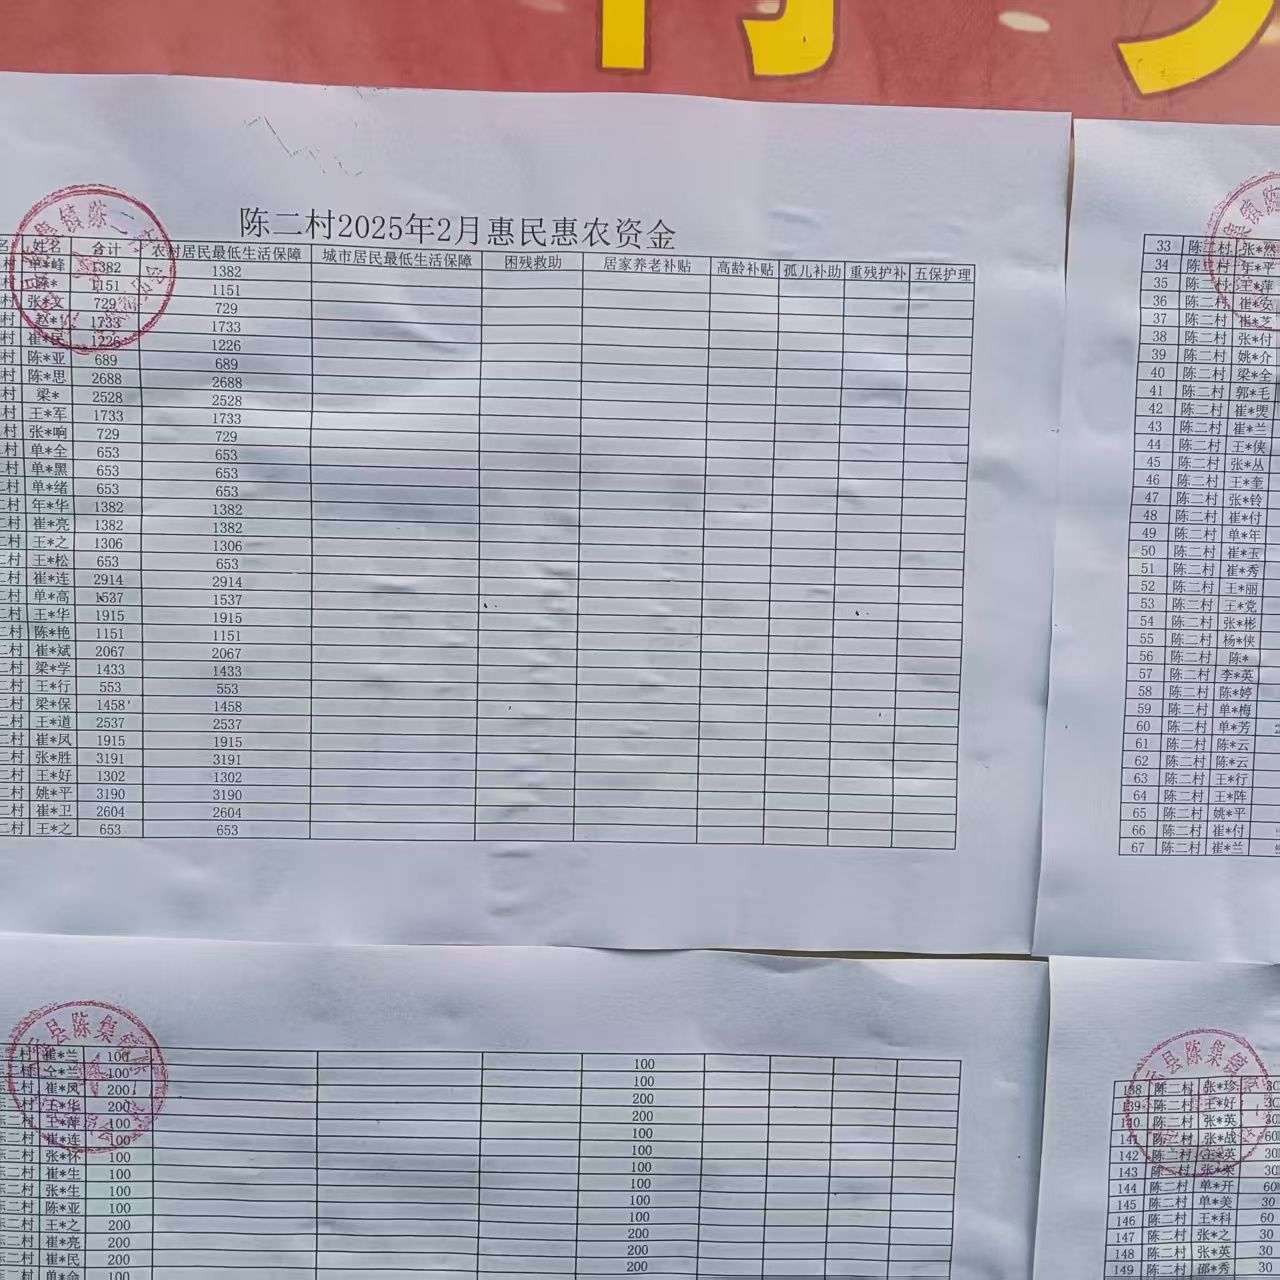 陈二村2025年2月惠民惠农资金
姓名 合计 农村居民最低生活保障 城市居民最低生活保障 困残救助 居家养老补贴 高龄补贴 孤儿补助 重残护补 五保护理
村 单*峰 1382 1382
村 陈* 1151 1151
村 张*文 729 729
村 赵* 1733 1733
村 崔*民 1226 1226
村 陈*亚 689 689
村 陈*思 2688 2688
村 梁* 2528 2528
村 王*军 1733 1733
村 张*响 729 729
村 单*全 653 653
村 单*黑 653 653
二村 单*绪 653 653
二村 年*华 1382 1382
二村 崔*亮 1382 1382
二村 王*之 1306 1306
二村 王*松 653 653
二村 崔*连 2914 2914
二村 单*高 1537 1537
二村 王*华 1915 1915
二村 陈*艳 1151 1151
二村 崔*斌 2067 2067
二村 梁*学 1433 1433
二村 王*行 553 553
二村 梁*保 1458 1458
二村 王*道 2537 2537
二村 崔*凤 1915 1915
二村 张*胜 3191 3191
二村 王*好 1302 1302
二村 姚*平 3190 3190
二村 崔*卫 2604 2604
二村 王*之 653 653
33 陈二村 张*然
34 陈二村 年*平
35 陈二村 王*萍
36 陈二村 崔*安
37 陈二村 崔*芝
38 陈二村 张*付
39 陈二村 姚*介
40 陈二村 梁*全
41 陈二村 郭*毛
42 陈二村 崔*
43 陈二村 崔*兰
44 陈二村 王*侠
45 陈二村 张*丛
46 陈二村 王*奎
47 陈二村 张*铃
48 陈二村 崔*付
49 陈二村 单*年
50 陈二村 崔*玉
51 陈二村 崔*秀
52 陈二村 王*丽
53 陈二村 王*党
54 陈二村 张*彬
55 陈二村 杨*侠
56 陈二村 陈*
57 陈二村 李*英
58 陈二村 陈*婷
59 陈二村 单*梅
60 陈二村 单*芳
61 陈二村 陈*云
62 陈二村 陈*云
63 陈二村 王*行
64 陈二村 王*阵
65 陈二村 姚*平
66 陈二村 崔*付
67 陈二村 崔*兰
县陈集镇
二村 崔*兰 100 100
二村 仝*兰 100 100
二村 崔*凤 200 200
二村 王*华 200 200
二村 王*萍 100 100
二村 崔*连 100 100
陈二村 张*怀 100 100
陈二村 崔*生 100 100
陈二村 张*生 100 100
陈二村 陈*亚 100 100
陈二村 王*之 200 200
陈二村 崔*亮 200 200
陈二村 崔*民 200 200
陈二村 单*全 100
县陈集镇
138 陈二村 张*珍
139 陈二村 王*好
140 陈二村 张*英
141 陈二村 张*战
142 陈二村 王*英
143 陈二村 张*荣
144 陈二村 单*开
145 陈二村 单*美 30
146 陈二村 王*科 60
147 陈二村 张*之 30
148 陈二村 张*英 30
149 陈二村 邵*秀 30